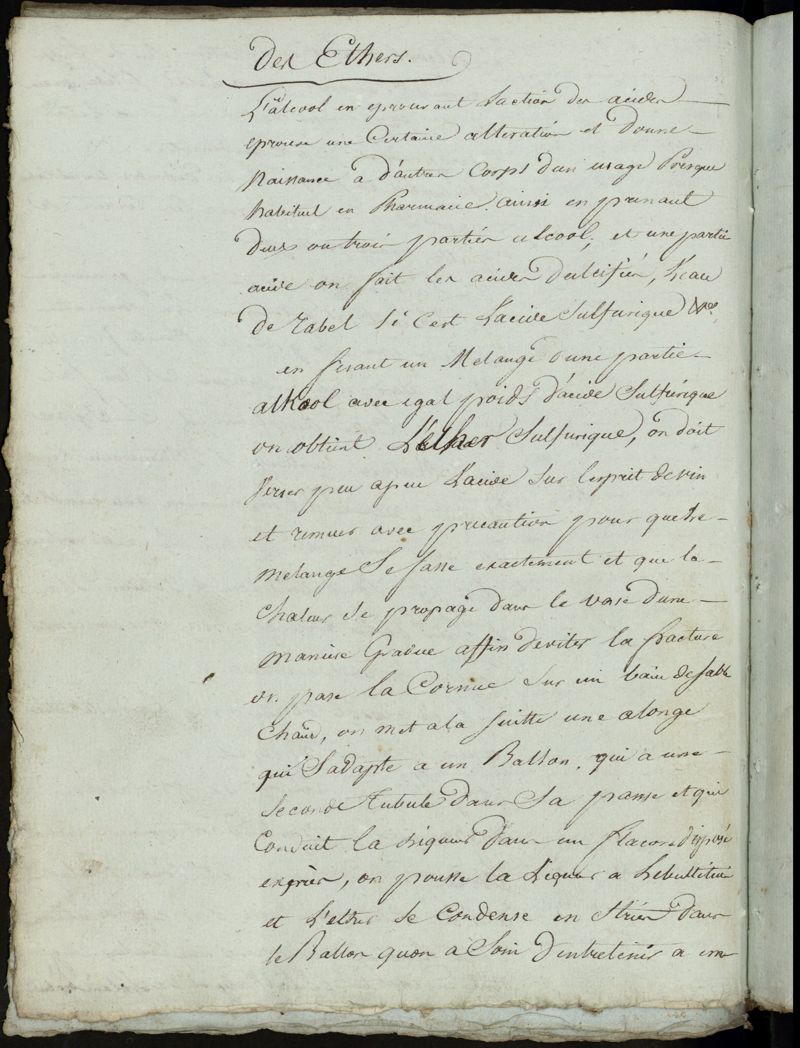 Des Ethers.
L'alcool en eprouvant L'action des acides
eprouve une Certaine alteration et Donne
Naissance a d'autres Corps d'un usage Presque
habituel en Pharmacie. ainsi en prenant
deux ou trois parties alcool, et une partie
acide on fait les acides dulcifiés, L'eau
de rabel Si C'est L'acide Sulfurique &ce.
en fesant un Melange d'une partie
alkool avec egal poids d'acide Sulfurique
on obtient L'ether Sulfurique, on doit
verser peu a peu L'acide Sur l'esprit de vin
et remuer avec precaution pour que le
melange Se fasse exactement et que la
Chaleur Se propage dans le vase d'une
maniere Gradue affin d'eviter la fracture
on pose la Cornue Sur un bain de sable
Chaud, on met a la suitte une alonge
qui S'adapte a un Ballon, qui a une
Seconde tubule dans Sa panse et qui
Conduit la Liqueur dans un flacon disposé
expres, on pousse la Liqueur a L'ebullition
et L'ether Se Condense en Stries dans
le Ballon quon a Soin d'entretenir a une